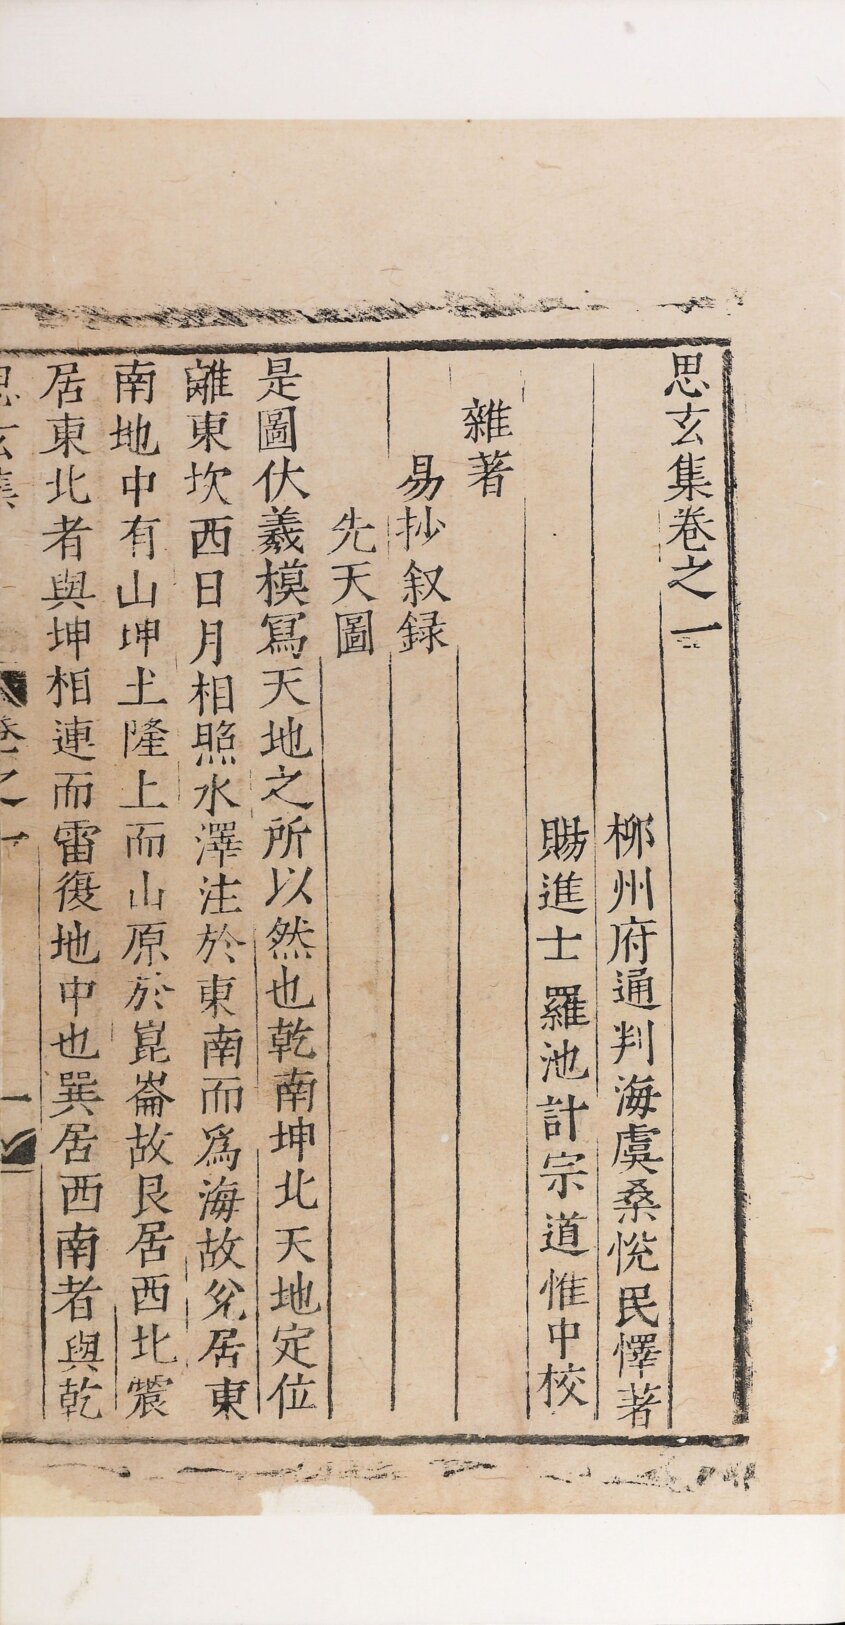 思玄集卷之一
柳州府通判海虞桑悅民懌著
賜進士羅池計宗道惟中校
雜著
易抄叙録
先天圖
是圖伏羲模冩天地之所以然也乾南坤北天地定位
離東坎西日月相照水澤注於東南而爲海故兊居東
南地中有山坤土隆上而山原於崑崙故艮居西北震
居東北者與坤相連而雷復地中也巽居西南者與乾
思玄集
卷之一
一